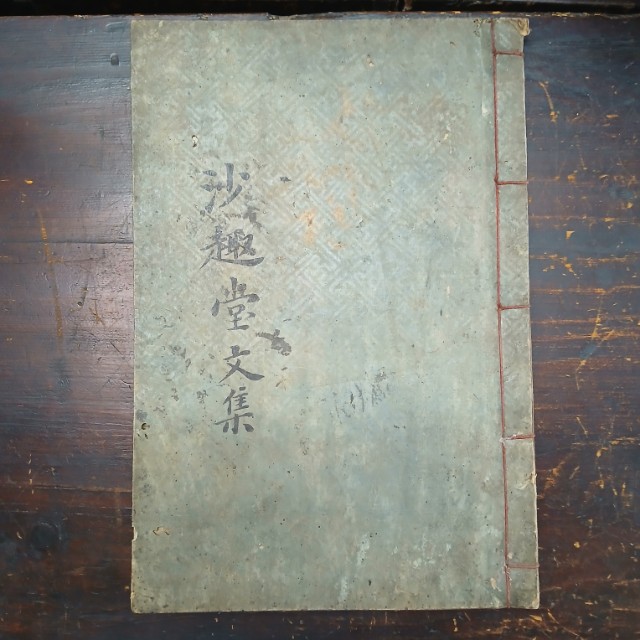 沙趣堂文集